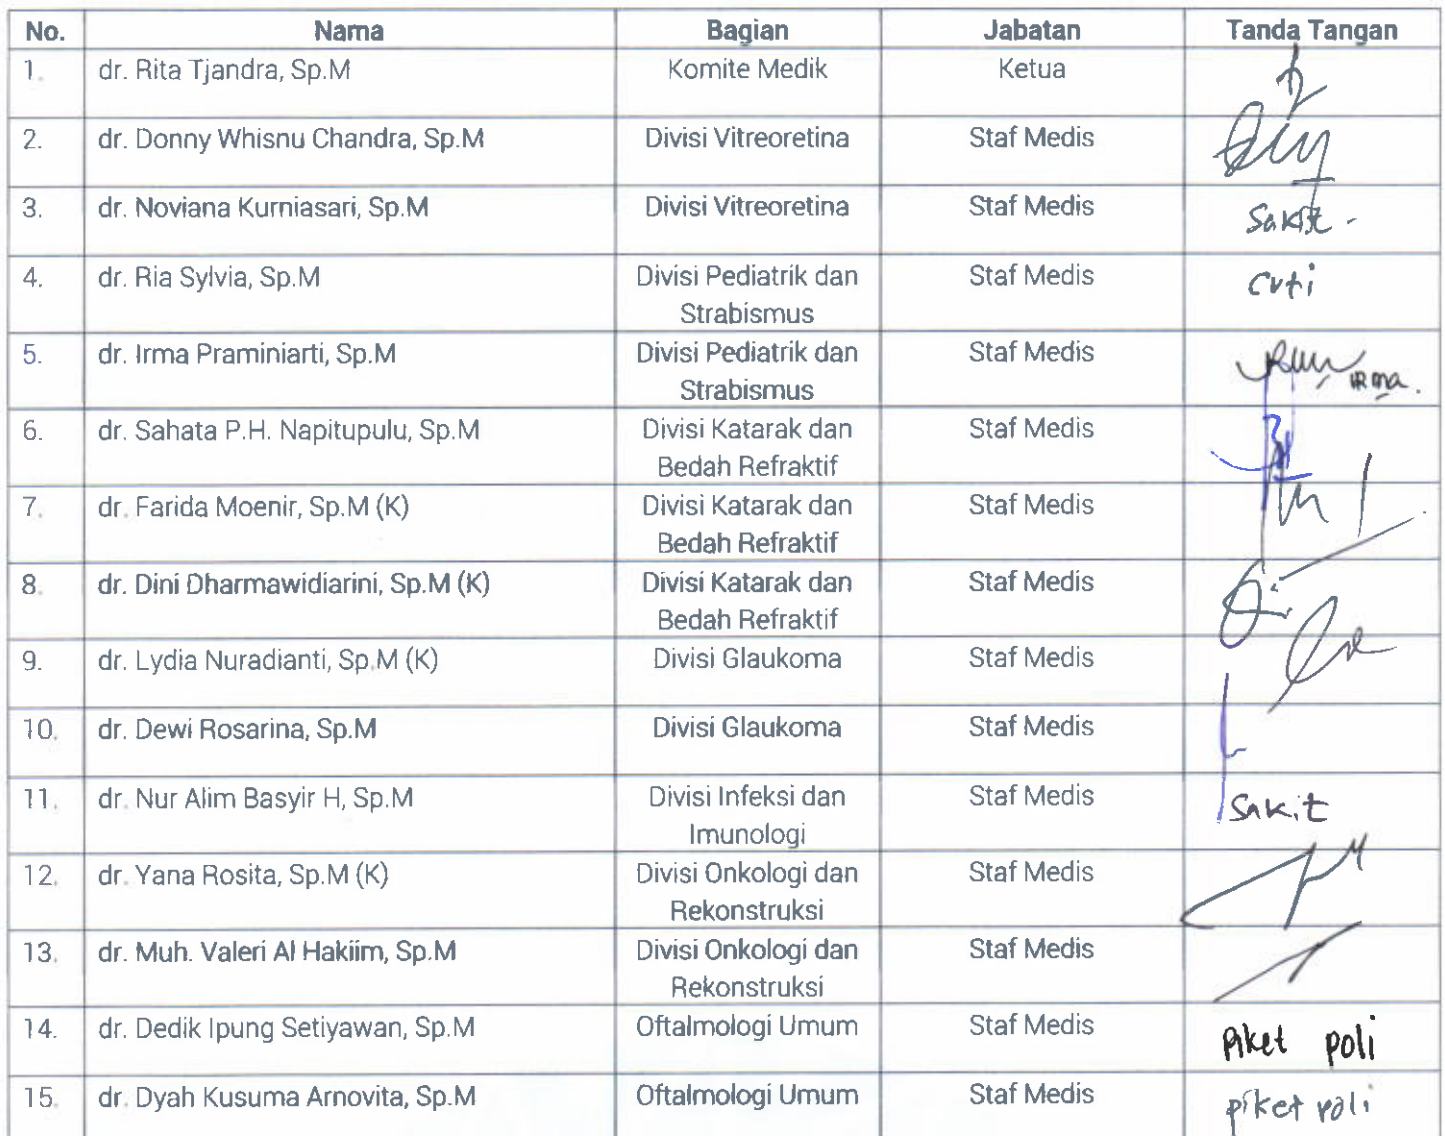 No. Nama Bagian Jabatan Tanda Tangan
1. dr. Rita Tjandra, Sp.M Komite Medik Ketua
2. dr. Donny Whisnu Chandra, Sp.M Divisi Vitreoretina Staf Medis
3. dr. Noviana Kurniasari, Sp.M Divisi Vitreoretina Staf Medis Sakit -
4. dr. Ria Sylvia, Sp.M Divisi Pediatrik dan Staf Medis cuti
Strabismus
5. dr. Irma Praminiarti, Sp.M Divisi Pediatrik dan Staf Medis
Strabismus IRma.
6. dr. Sahata P.H. Napitupulu, Sp.M Divisi Katarak dan Staf Medis
Bedah Refraktif
7. dr. Farida Moenir, Sp.M (K) Divisi Katarak dan Staf Medis
Bedah Refraktif
8. dr. Dini Dharmawidiarini, Sp.M (K) Divisi Katarak dan Staf Medis
Bedah Refraktif
9. dr. Lydia Nuradianti, Sp.M (K) Divisi Glaukoma Staf Medis
10. dr. Dewi Rosarina, Sp.M Divisi Glaukoma Staf Medis
11. dr. Nur Alim Basyir H, Sp.M Divisi Infeksi dan Staf Medis Sakit
Imunologi
12. dr. Yana Rosita, Sp.M (K) Divisi Onkologi dan Staf Medis
Rekonstruksi
13. dr. Muh. Valeri Al Hakiim, Sp.M Divisi Onkologi dan Staf Medis
Rekonstruksi
14. dr. Dedik Ipung Setiyawan, Sp.M Oftalmologi Umum Staf Medis Piket poli
15. dr. Dyah Kusuma Arnovita, Sp.M Oftalmologi Umum Staf Medis piket poli